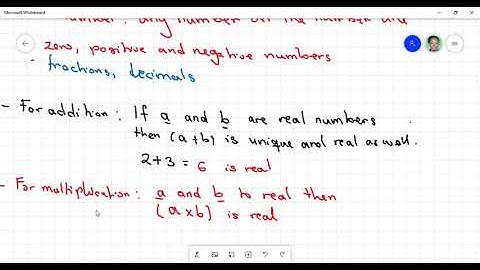 Microsoft Whiteboard
number: any number on the number line
zero, positive and negative numbers
fractions, decimals
- For addition: If a and b are real numbers
then (a+b) is unique and real as well.
2+3 = 6 is real
- For multiplication: a and b to real then
(a×b) is real